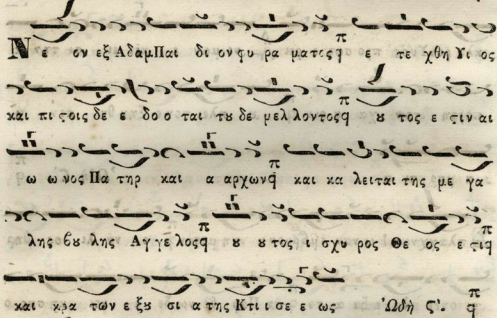 Νε ον εξ Αδαμ Παι δι ον φυ ρα ματος ε τε χθη Υι ος
και πι ςοις δε ε δο ο ται τȣ δε μελ λοντος ȣ τος ε ςιν αι
ω ω νος Πα τηρ και α αρχων και κα λειται της με γα
λης βȣ λης Αγ γε λος ȣ ȣ τος ι σχυ ρος Θε ος ε ςι
και κρα των ε ξȣ σι α της Κτι ι σε ε ως Ὠδὴ ς'.